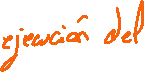 ejecución del